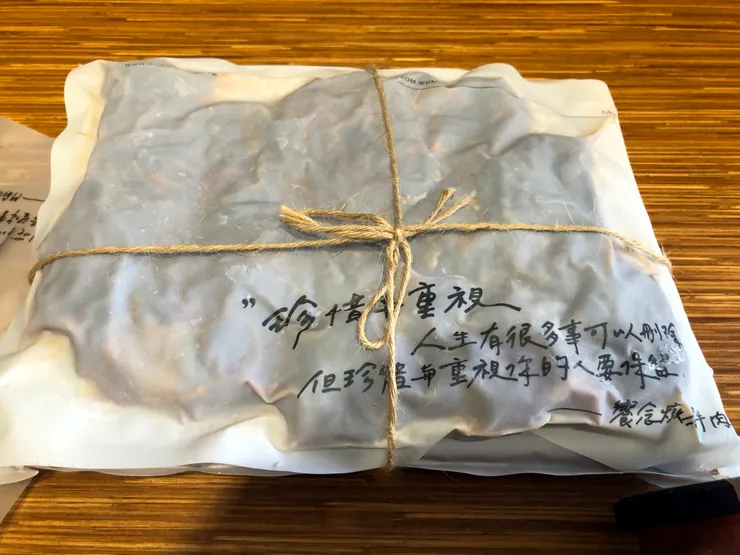 ”珍惜与重視
人生有很多事可以刪除
但珍惜与重視你的人要保留
饗念